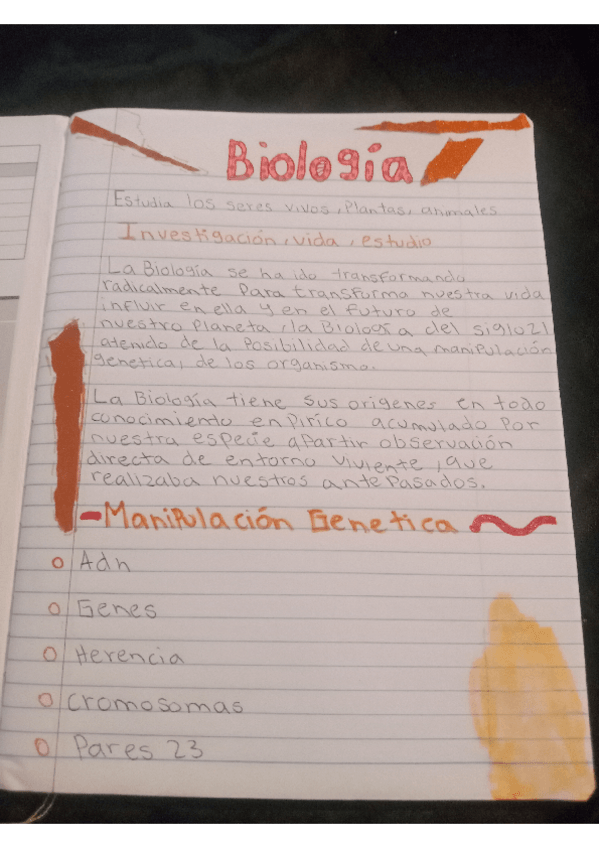 Biología
Estudia los seres vivos, Plantas, animales
Investigación, vida, estudio
La Biología se ha ido transformando
radicalmente Para transforma nuestra vida
influir en ella y en el futuro de
nuestro Planeta, la Biología del siglo 21
atenido de la Posibilidad de una manipulación
genetica, de los organismo.
La Biología tiene sus origenes en todo
conocimiento enpirico acumulado por
nuestra especie apartir observación
directa de entorno viviente, que
realizaba nuestros antepasados.
-Manipulación Genetica
Adn
Genes
Herencia
Cromosomas
Pares 23